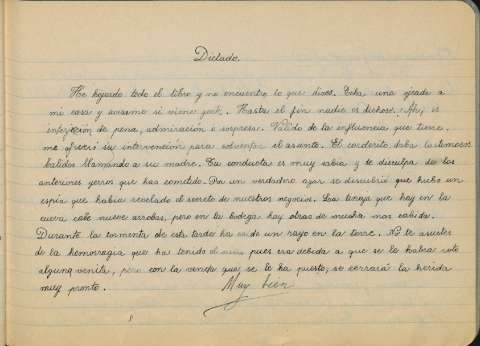 Dictado.
He hojeado todo el libro y no encuentro lo que dices. Echa una ojeada a
mi casa y avísame si viene gente. Hasta el fin nadie es dichoso. ¡Ah! es
interjección de pena, admiración o sorpresa. Valido de la influencia que tiene,
me ofreció su intervención para solventar el asunto. El corderito daba lastimosos
balidos llamando a su madre. Tu conducta es muy sabia y te disculpa de los
anteriores yerros que has cometido. Por un verdadero azar se descubrió que hubo un
espía que había revelado el secreto de nuestros negocios. La tinaja que hay en la
cueva cabe nueve arrobas, pero en la bodega hay otras de mucha más cabida.
Durante la tormenta de esta tarde ha caído un rayo en la torre. No te asustes
de la hemorragia que ha tenido pues era debida a que se le había roto
alguna venita, pero con la venda que se le ha puesto, se cerrará la herida
muy pronto.
Muy bien